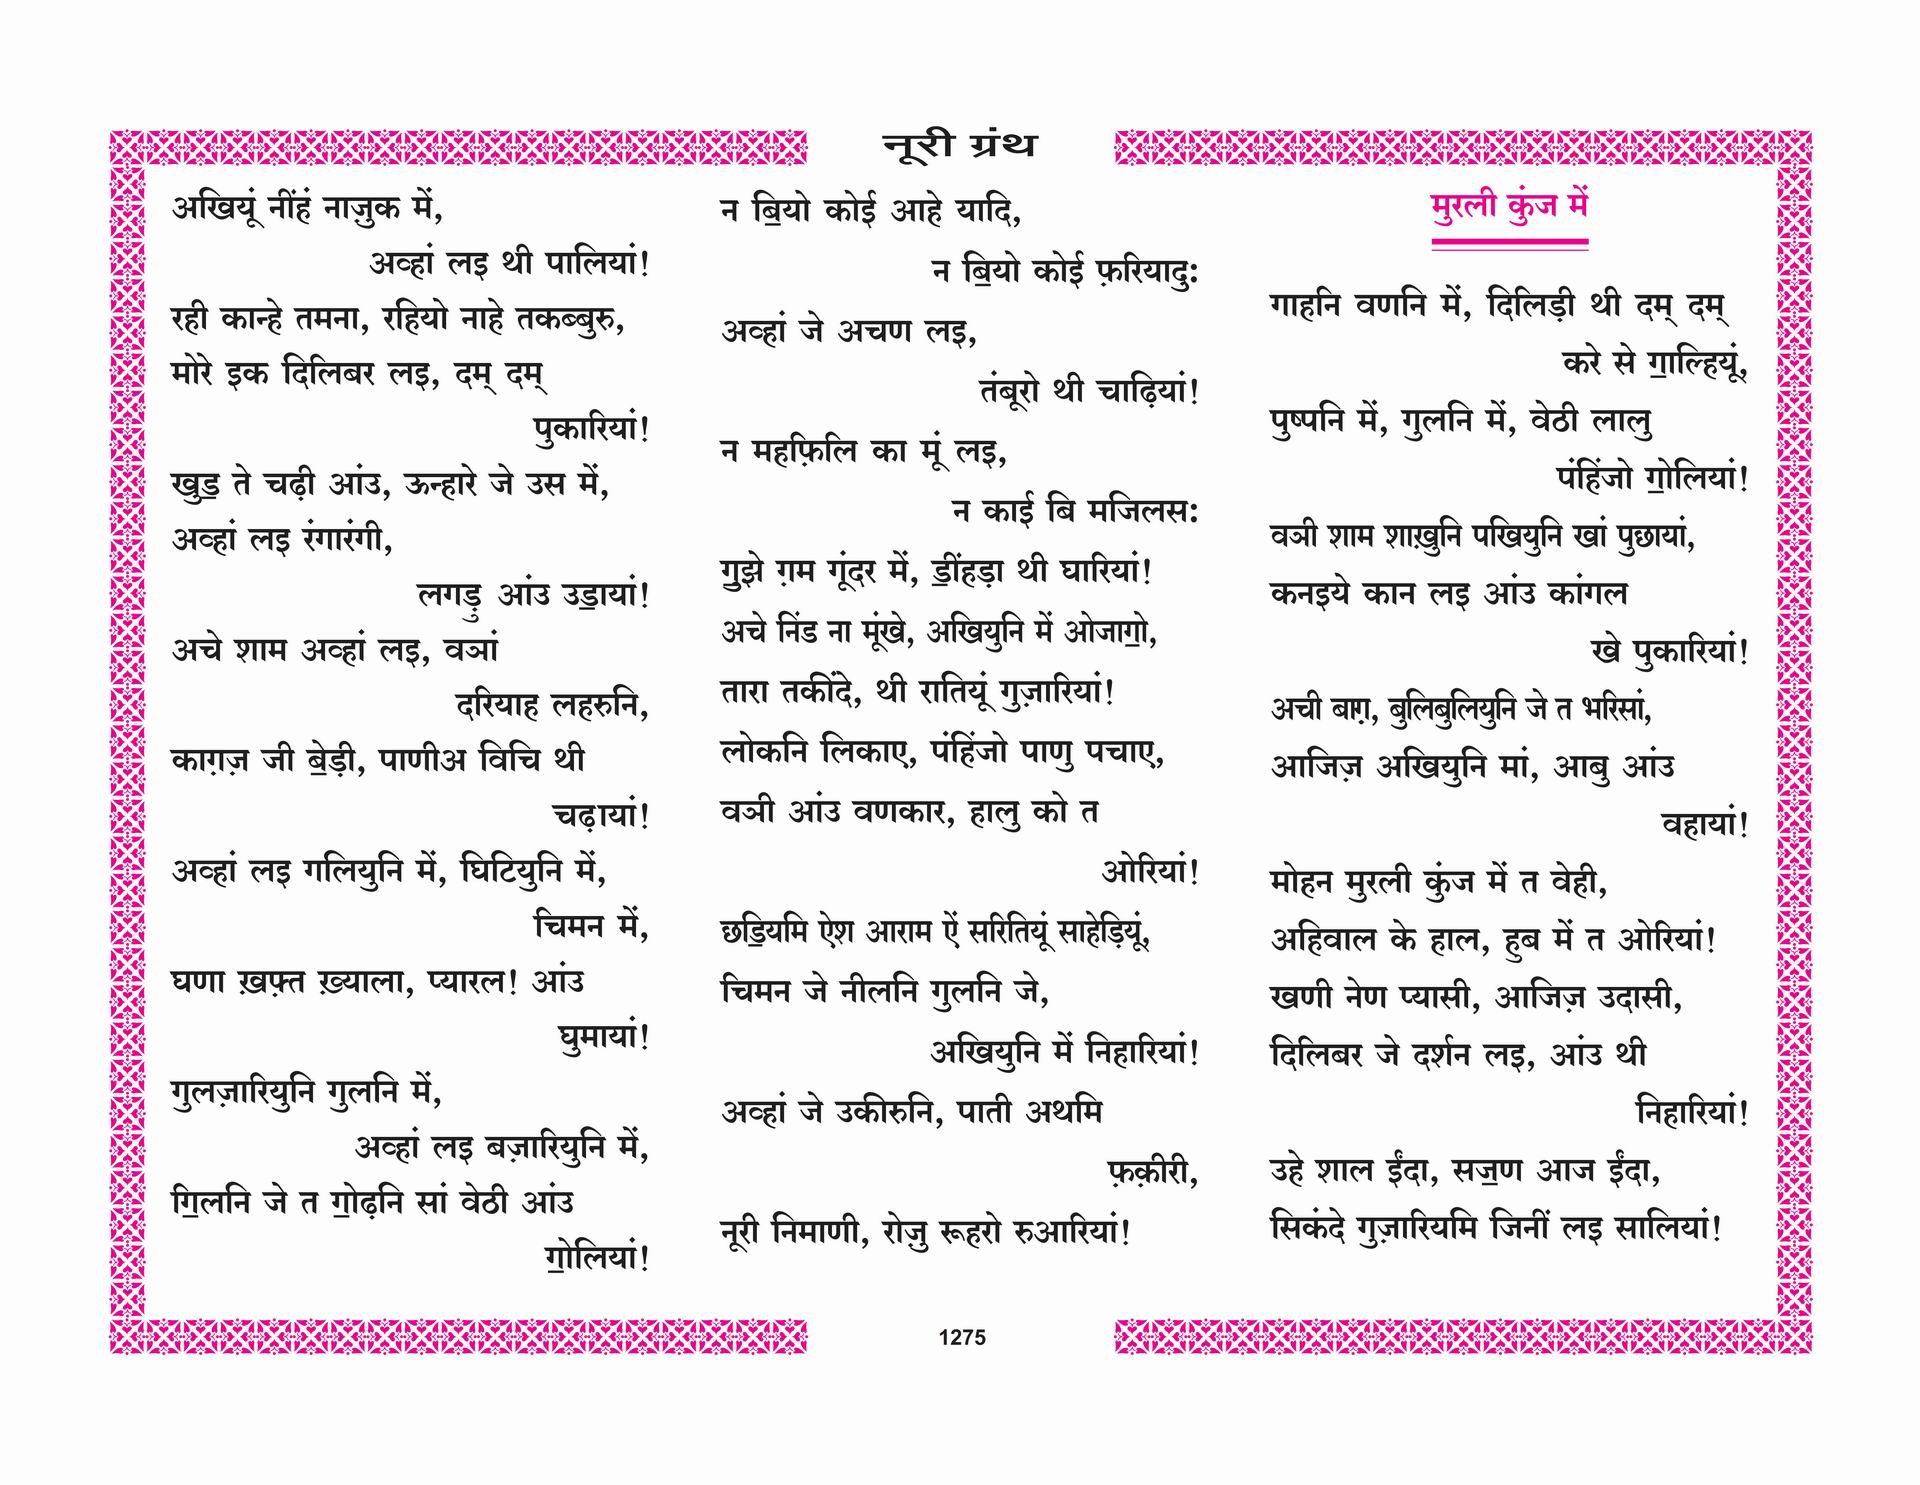 नूरी ग्रंथ
अखियूं नींहं नाज़ुक में,
अव्हां लइ थी पालियां!
रही कान्हे तमना, रहियो नाहे तकब्बुरु,
मोरे इक दिलिबर लइ, दम् दम्
पुकारियां!
खुड॒ ते चढ़ी आंउ, ऊन्हारे जे उस में,
अव्हां लइ रंगारंगी,
लगड़ु आंउ उड॒ायां!
अचे शाम अव्हां लइ, वञां
दरियाह लहरुनि,
काग़ज़ जी ब॒ेड़ी, पाणीअ विचि थी
चढ़ायां!
अव्हां लइ गलियुनि में, घिटियुनि में,
चिमन में,
घणा ख़फ़्त ख़्याला, प्यारल! आंउ
घुमायां!
गुलज़ारियुनि गुलनि में,
अव्हां लइ बज़ारियुनि में,
ग॒िलनि जे त ग॒ोढ़नि सां वेठी आंउ
ग॒ोलियां!
न ब॒ियो कोई आहे यादि,
न ब॒ियो कोई फ़रियादु:
अव्हां जे अचण लइ,
तंबूरो थी चाढ़ियां!
न महफ़िलि का मूं लइ,
न काई बि मजिलस:
ग॒ुझे ग़म गूंदर में, ड॒ींहड़ा थी घारियां!
अचे निंड ना मूंखे, अखियुनि में ओजाग॒ो,
तारा तकींदे, थी रातियूं गुज़ारियां!
लोकनि लिकाए, पंहिंजो पाणु पचाए,
वञी आंउ वणकार, हालु को त
ओरियां!
छड॒ियमि ऐश आराम ऐं सरितियूं साहेड़ियूं,
चिमन जे नीलनि गुलनि जे,
अखियुनि में निहारियां!
अव्हां जे उकीरुनि, पाती अथमि
फ़क़ीरी,
नूरी निमाणी, रोज़ु रूहरो रुआरियां!
मुरली कुंज में
गाहनि वणनि में, दिलिड़ी थी दम् दम्
करे से ग॒ाल्हियूं,
पुष्पनि में, गुलनि में, वेठी लालु
पंहिंजो ग॒ोलियां!
वञी शाम शाख़ुनि पखियुनि खां पुछायां,
कनइये कान लइ आंउ कांगल
खे पुकारियां!
अची बाग़, बुलिबुलियुनि जे त भरिसां,
आजिज़ अखियुनि मां, आबु आंउ
वहायां!
मोहन मुरली कुंज में त वेही,
अहिवाल के हाल, हुब में त ओरियां!
खणी नेण प्यासी, आजिज़ उदासी,
दिलिबर जे दर्शन लइ, आंउ थी
निहारियां!
उहे शाल ईंदा, सज॒ण आज ईंदा,
सिकंदे गुज़ारियमि जिनीं लइ सालियां!
1275